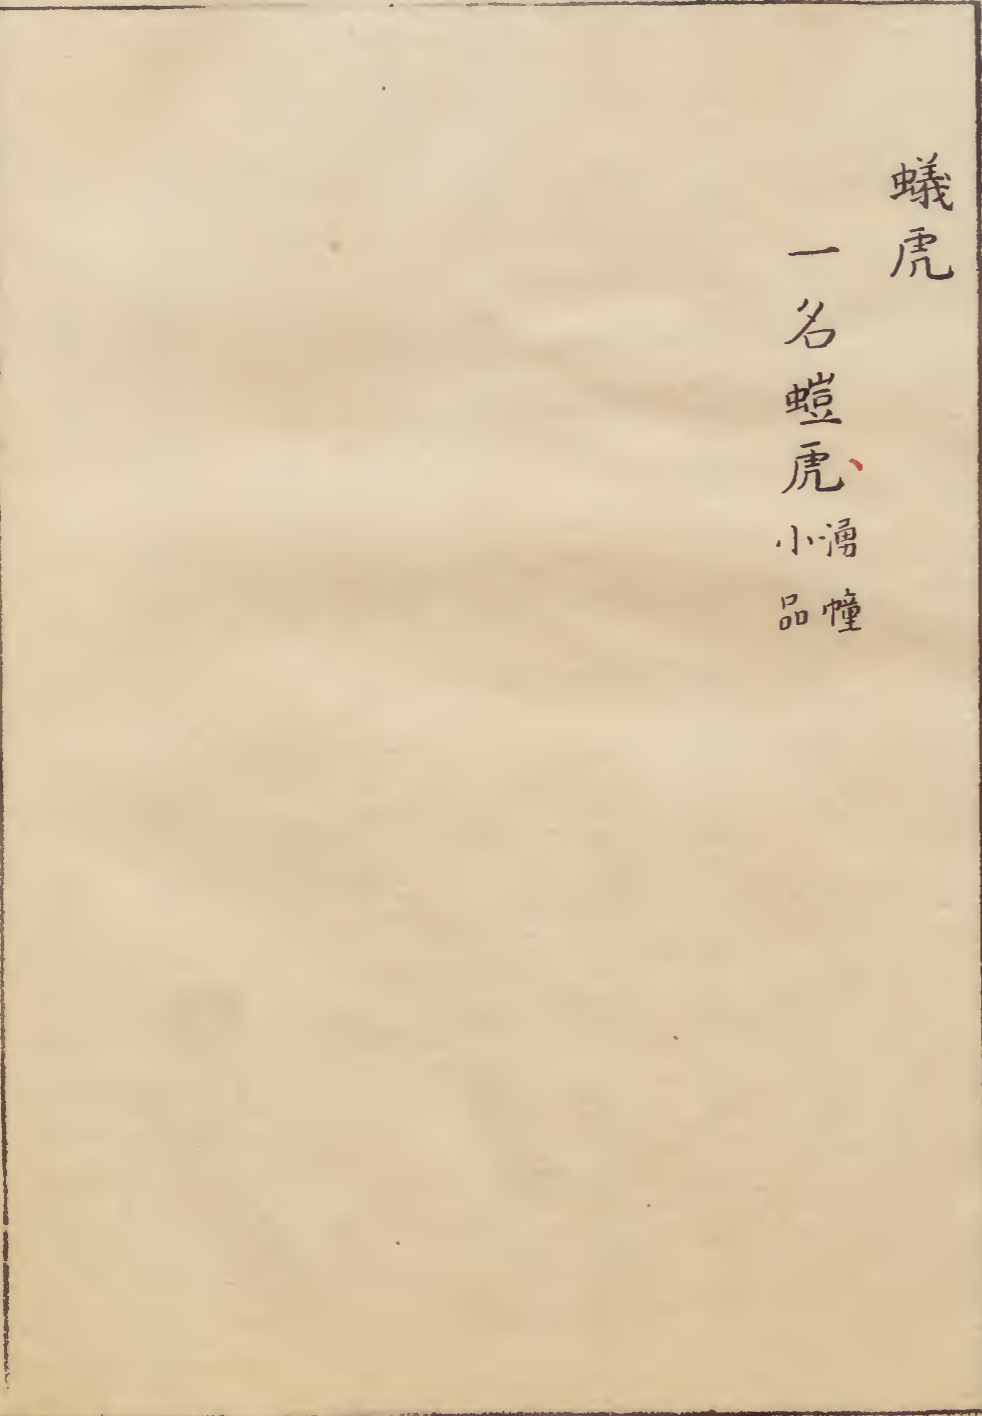 蟻虎
一名螘虎、湧幢小品